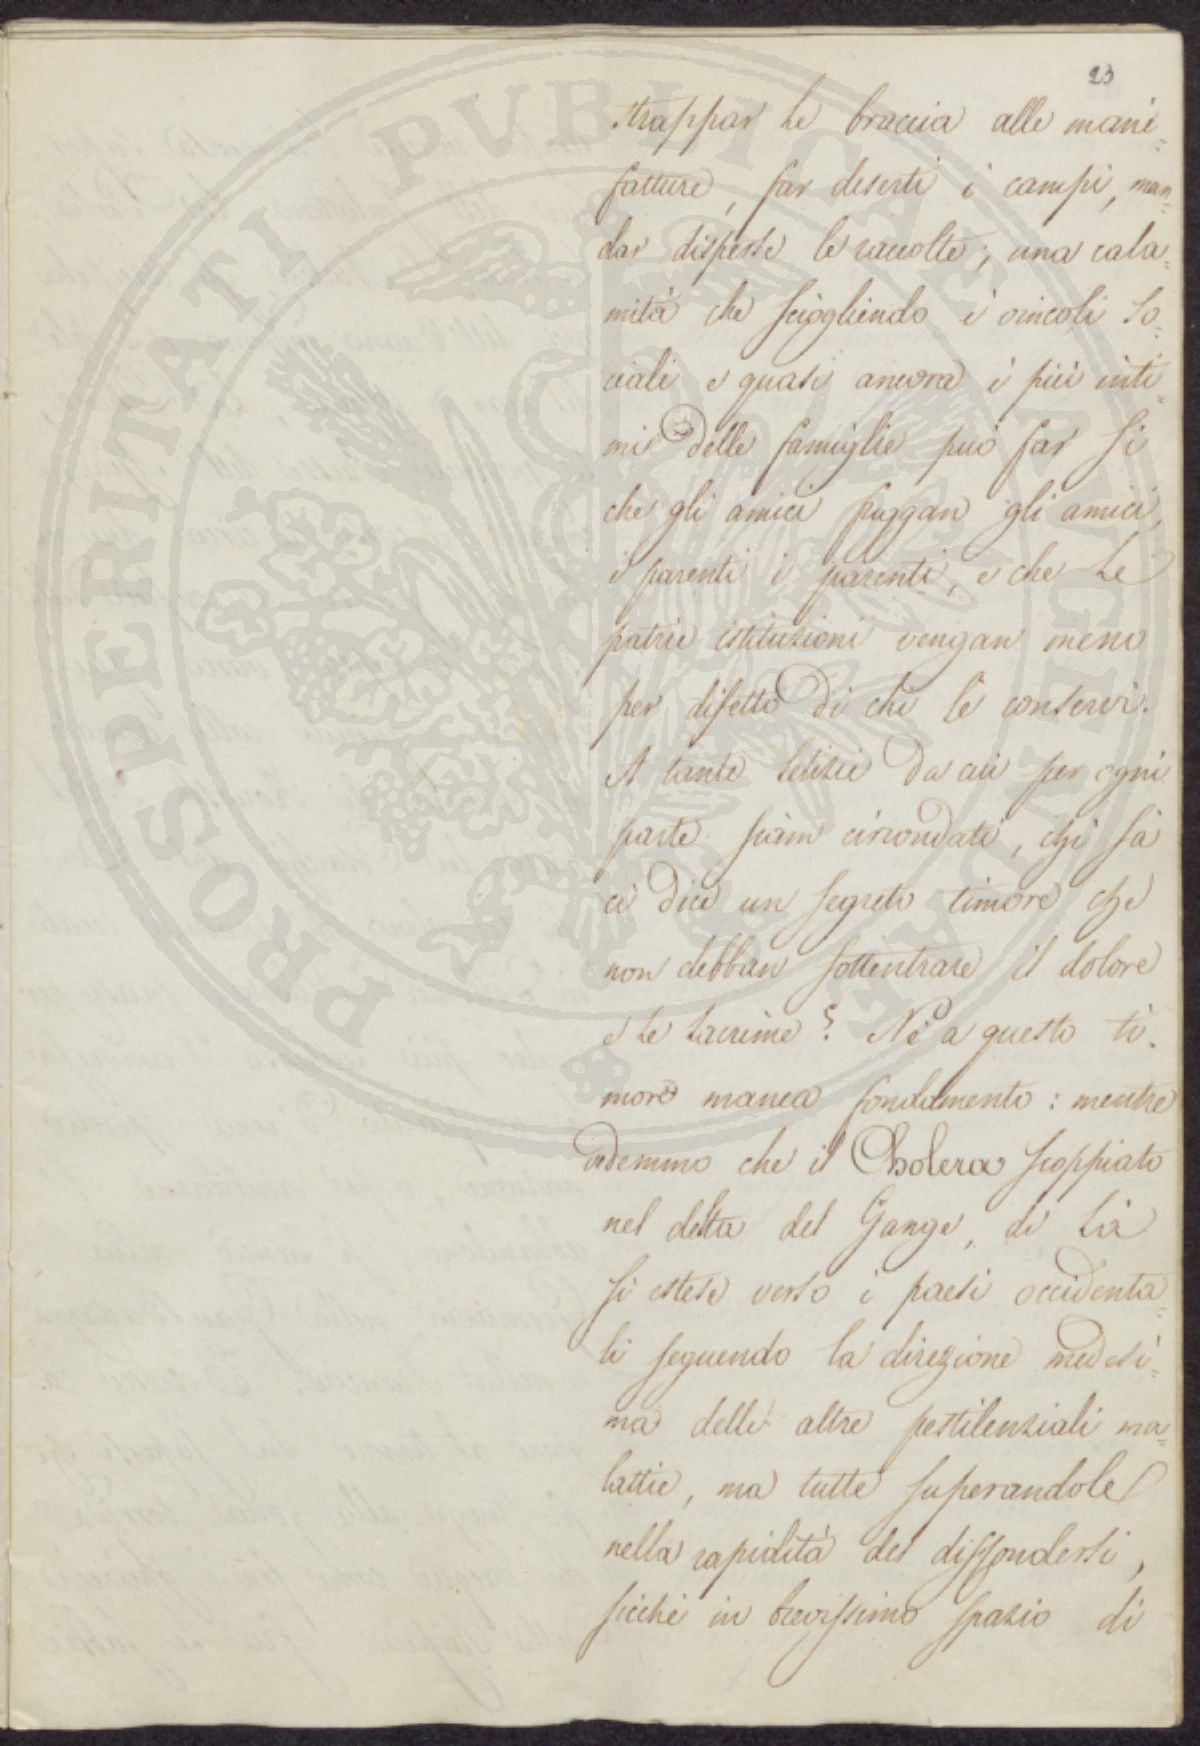 23
strappar le braccia alle mani=
fatture, far deserti i campi, man=
dar disperse le raccolte; una cala=
mità che sciogliendo i vincoli so=
ciali e quasi ancora i più inti=
mi delle famiglie può far si
che gli amici fuggan gli amici,
i parenti i parenti, e che le
patrie istituzioni vengan meno
per difetto di chi le conservi.
A tante letizie da cui per ogni
parte siam circondati, chi sà
ci dice un segreto timore che
non debban sottentrare il dolore
e le lacrime? Nè a questo ti=
more manca fondamento: mentre
vedemmo che il Cholera scoppiato
nel delta del Gange, di là
si estese verso i paesi occidenta=
li seguendo la direzione medesi=
ma delle altre pestilenziali ma=
lattie, ma tutte superandole
nella rapidità del diffondersi,
sicchè in brevissimo spazio di
PROSPERITATI PUBLICAE AUGENDAE